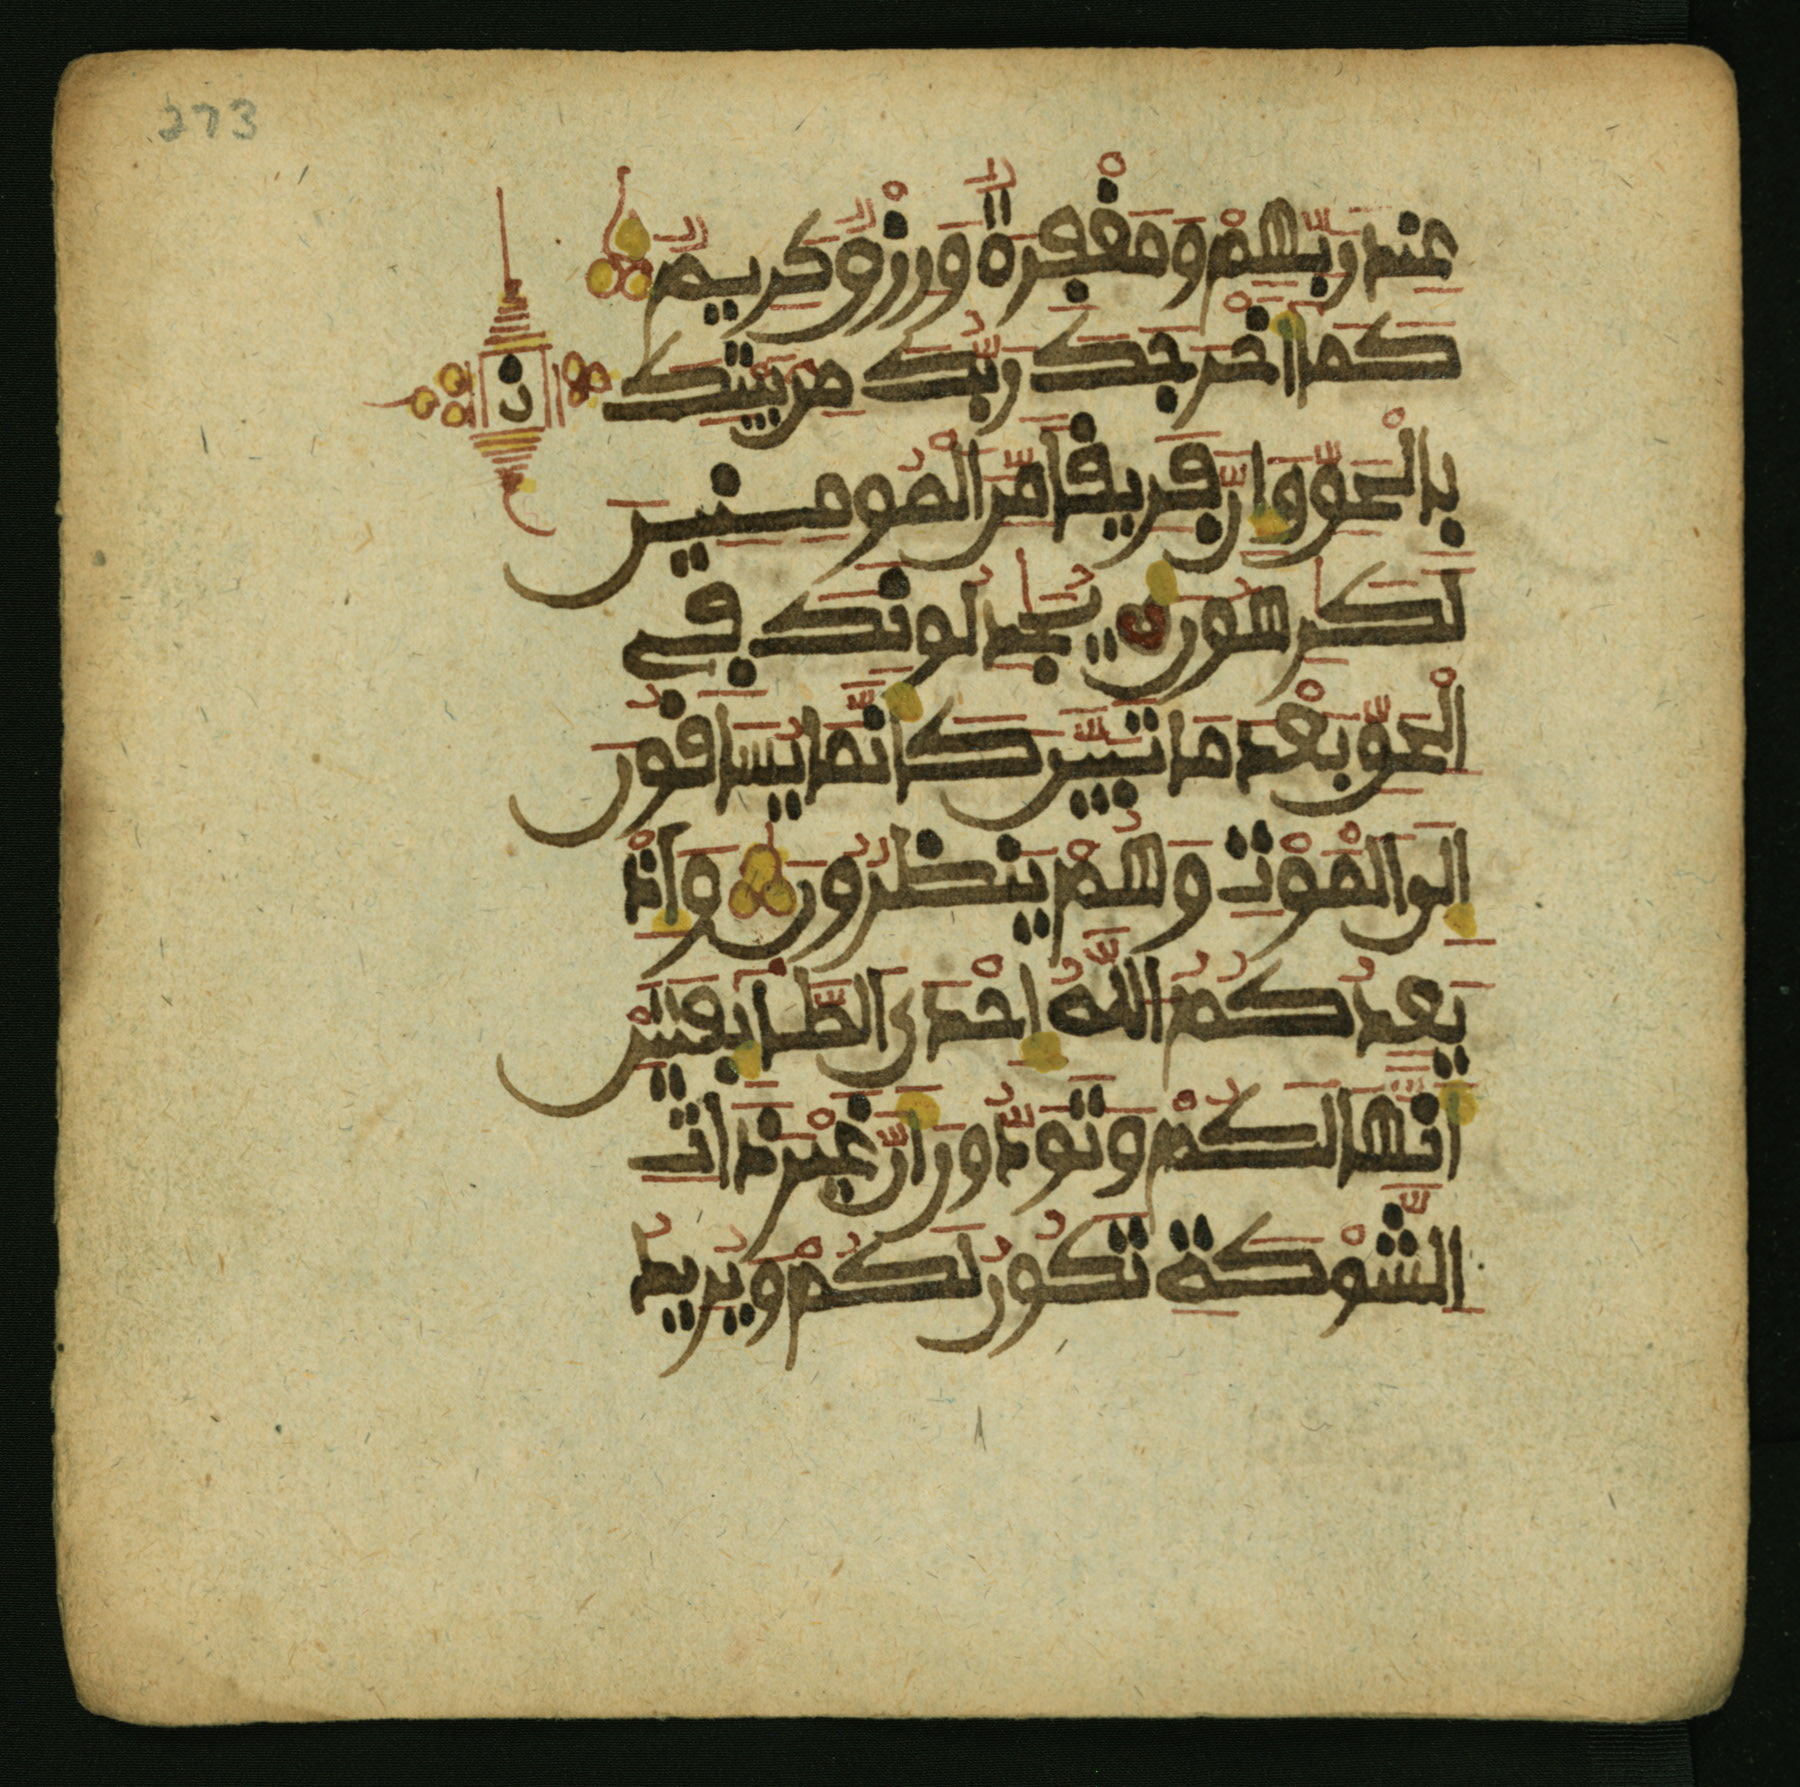 273
عِندَ رَبِّهِمْ وَمَغْفِرَةٌ وَرِزْقٌ كَرِيمٌ
كَمَا أَخْرَجَكَ رَبُّكَ مِن بَيْتِكَ
ن
بِالْحَقِّ وَإِنَّ فَرِيقًا مِّنَ الْمُومِنِينَ
لَكَرِهُونَ يُجَدِلُونَكَ فِي
الْحَقِّ بَعْدَ مَا تَبَيَّنَ كَأَنَّمَا يُسَاقُونَ
إِلَى الْمَوْتِ وَهُمْ يَنظُرُونَ وَإِذْ
يَعِدُكُمُ اللَّهُ إِحْدَى الطَّائِفَتَيْنِ
أَنَّهَا لَكُمْ وَتَوَدُّونَ أَنَّ غَيْرَ ذَاتِ
الشَّوْكَةِ تَكُونُ لَكُمْ وَيُرِيدُ